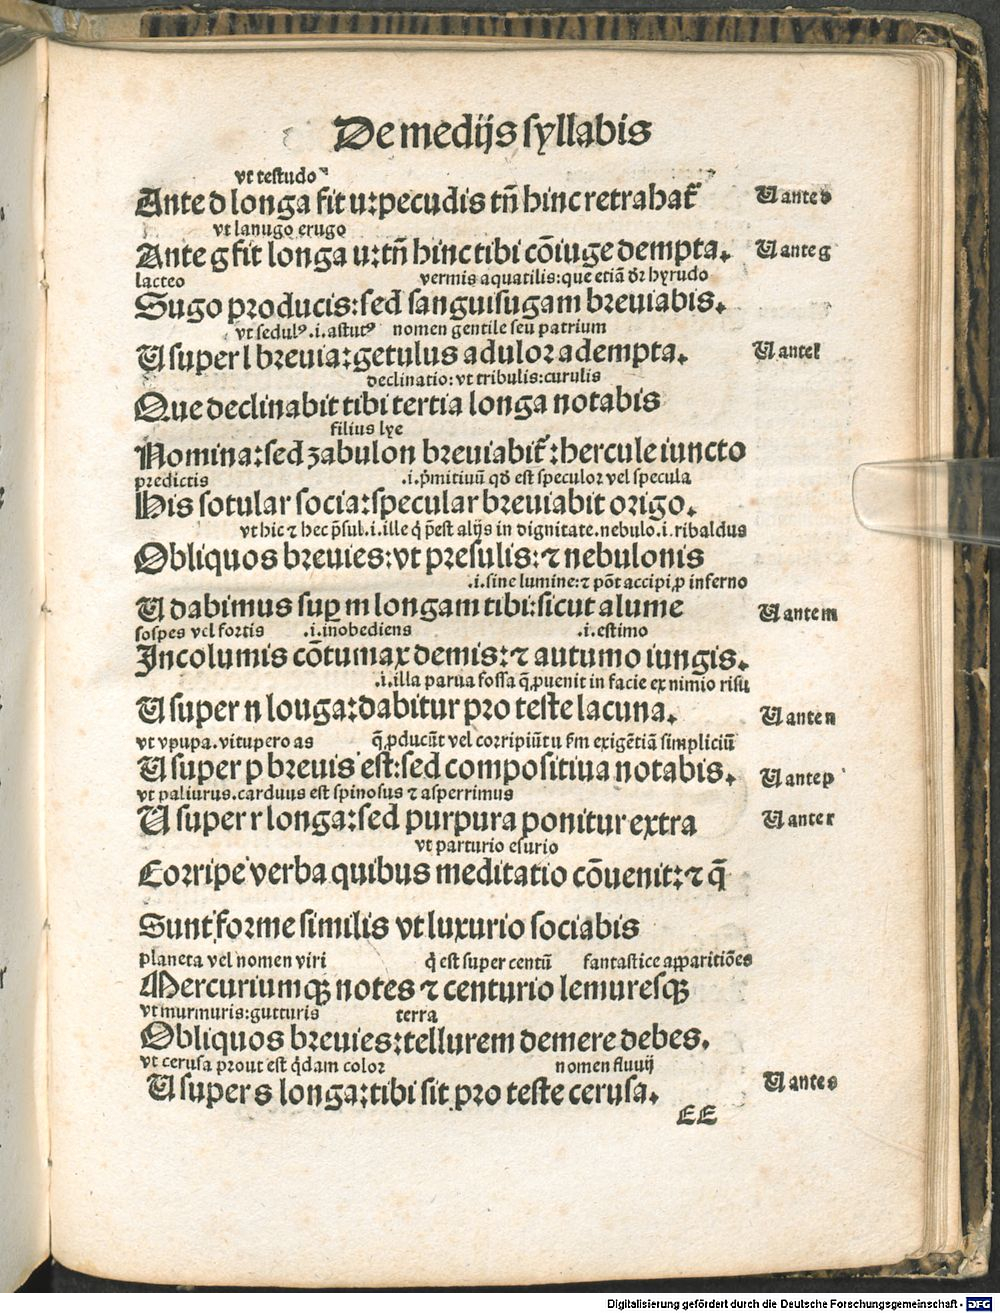 De medijs syllabis
vt testudo
Ante d longa fit u: pecudis tñ hinc retrahat᷒ U ante d
vt lanugo erugo
Ante g fit longa u: tñ hinc tibi cōiuge dempta. U ante g
lacteo vermis aquatilis: que etiā dr̄ hyrudo
Sugo producis: sed sanguisugam breviabis.
vt sedulꝰ .i. astutꝰ nomen gentile seu patrium
U super l brevia: getulus adulor adempta. U ante l
declinatio: vt tribulis: curulis
Que declinabit tibi tertia longa notabis
filius lye
Nomina: sed zabulon breviabit᷒: hercule iuncto
predictis .i. p̄mitiuū qd̄ est speculor vel specula
His sotular socia: specular breuiabit origo.
vt hic ⁊ hec p̄sul .i. ille q̇ p̄est alijs in dignitate. nebulo .i. ribaldus
Obliquos breuies: vt presulis: ⁊ nebulonis
.i. sine lumine: ⁊ pōt accipi ꝓ inferno
U dabimus suꝑ m longam tibi: sicut alume U ante m
sospes vel fortis .i. inobediens .i. estimo
Incolumis cōtumax demis: ⁊ autumo iungis.
.i. illa parua fossa q̄ ꝓuenit in facie ex nimio risu
U super n louga: dabitur pro teste lacuna. U ante n
vt vpupa. vitupero as q̄ ꝓducūt vel corripiūt u ẜm exigētiā simpliciū
U super p breuis est: sed compositiua notabis. U ante p
vt paliurus. carduus est spinosus ⁊ asperrimus
U super r longa: sed purpura ponitur extra U ante r
vt parturio esurio
Corripe verba quibus meditatio cōuenit: ⁊ q̄
Sunt forme similis vt luxurio sociabis
planeta vel nomen viri q̇ est super centū fantastice apparitiōes
Mercuriumqꝫ notes ⁊ centurio lemuresqꝫ
vt murmuris: gutturis terra
Obliquos breuies: tellurem demere debes.
vt cerusa prout est q̇dam color nomen fluuij
U super s longa: tibi sit pro teste cerusa. U ante s
EE
Digitalisierung gefördert durch die Deutsche Forschungsgemeinschaft - DFG